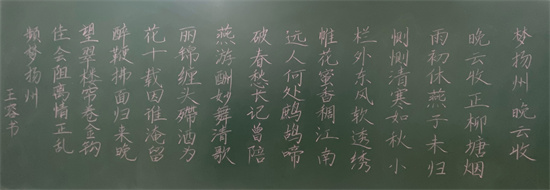 梦扬州 晚云收
晚云收正柳塘烟
雨初休燕子未归
恻恻清寒如秋小
栏外东风软透绣
帷花蜜香稠江南
远人何处鹧鸪啼
破春愁长记曾陪
燕游酬妙舞清歌
丽锦缠头殢酒为
花十载因谁淹留
醉鞭拂面归来晚
望翠楼帘卷金钩
佳会阻离情正乱
频梦扬州
王 书